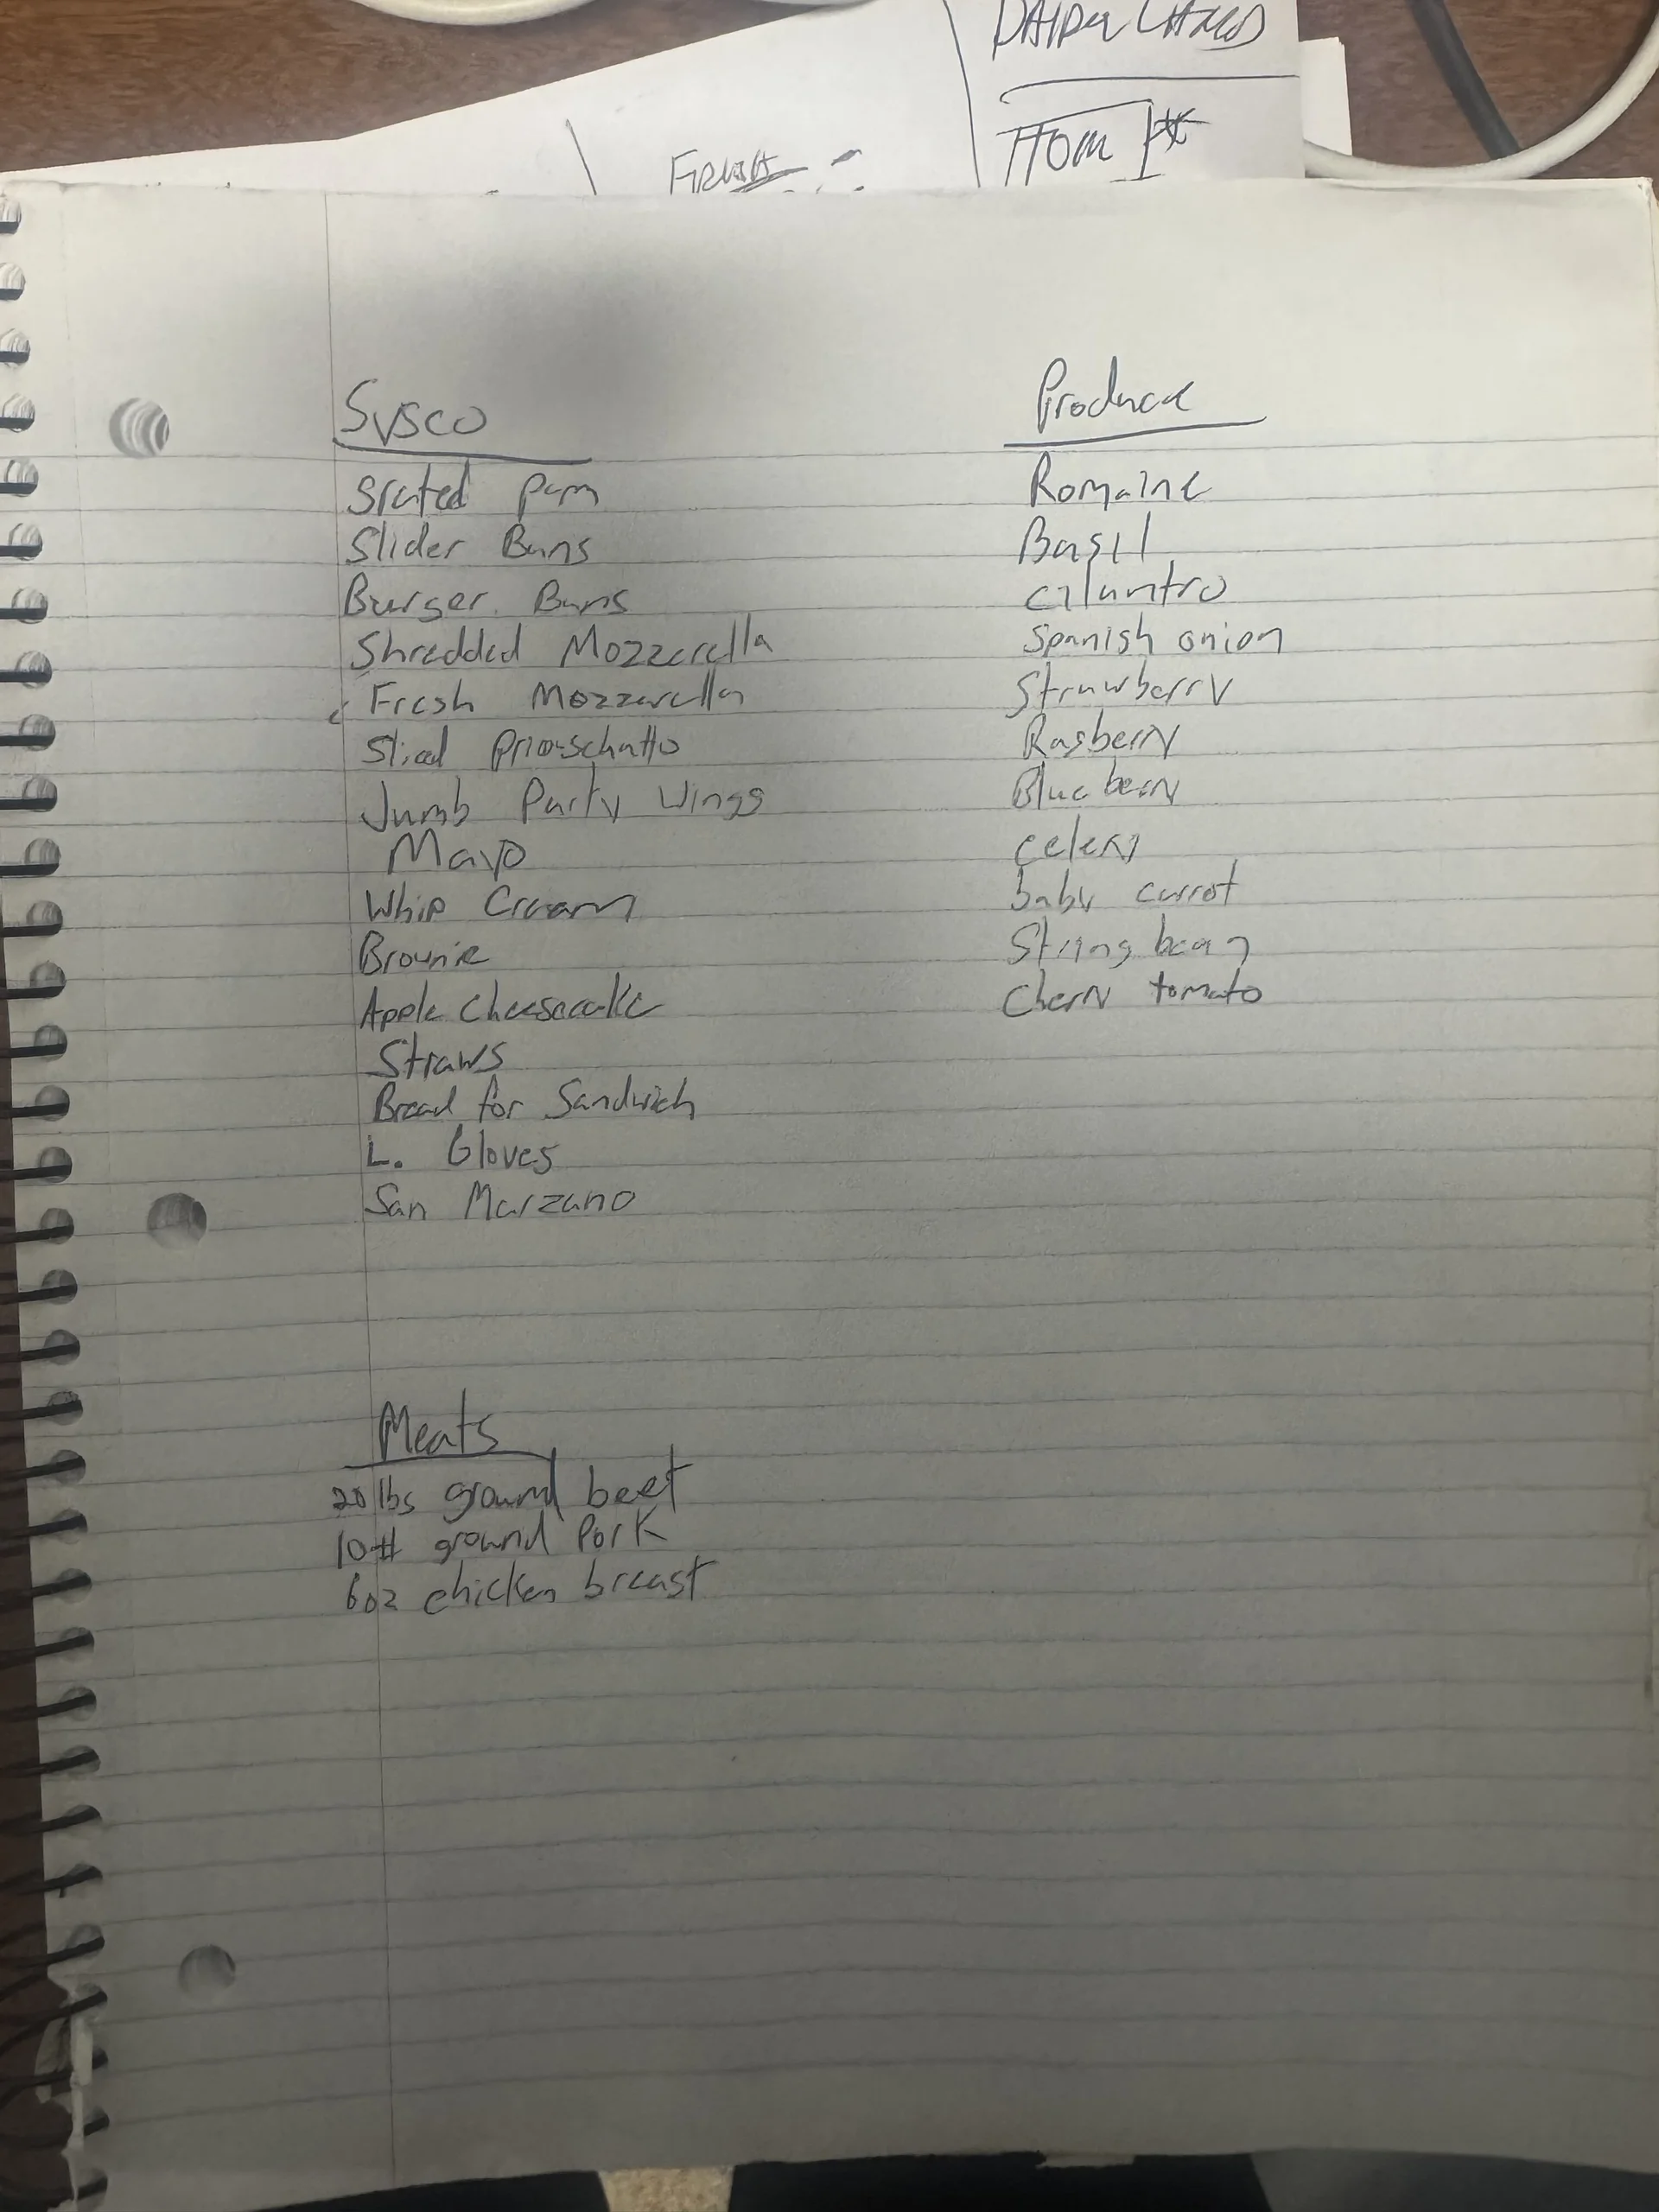 Fresh
Item 1*
Sysco
Grated parm
Slider Buns
Burger Buns
Shredded Mozzerella
Fresh Mozzarella
Sliced
Jumb Party Wings
Mayo
Whip Cream
Brownie
Apple Cheesecake
Straws
Bread for Sandwich
L. Gloves
San Marzano
Meats
20 lbs ground beef
10# ground Pork
6oz chicken breast
Produce
Romaine
Basil
cilantro
Spanish onion
Strawberry
Rasberry
Blueberry
celery
baby carrot
String bean
Cherry tomato